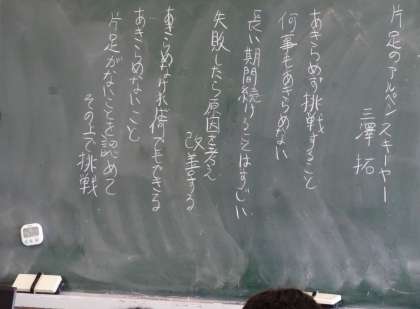 片足のアルペンスキーヤー
三澤 拓
あきらめず挑戦すること
何事もあきらめない
長い期間続けることはすごい
失敗したら原因を考え
改善する
あきらめなければ何でもできる
あきらめないこと
片足がないことを認めて
その上で挑戦